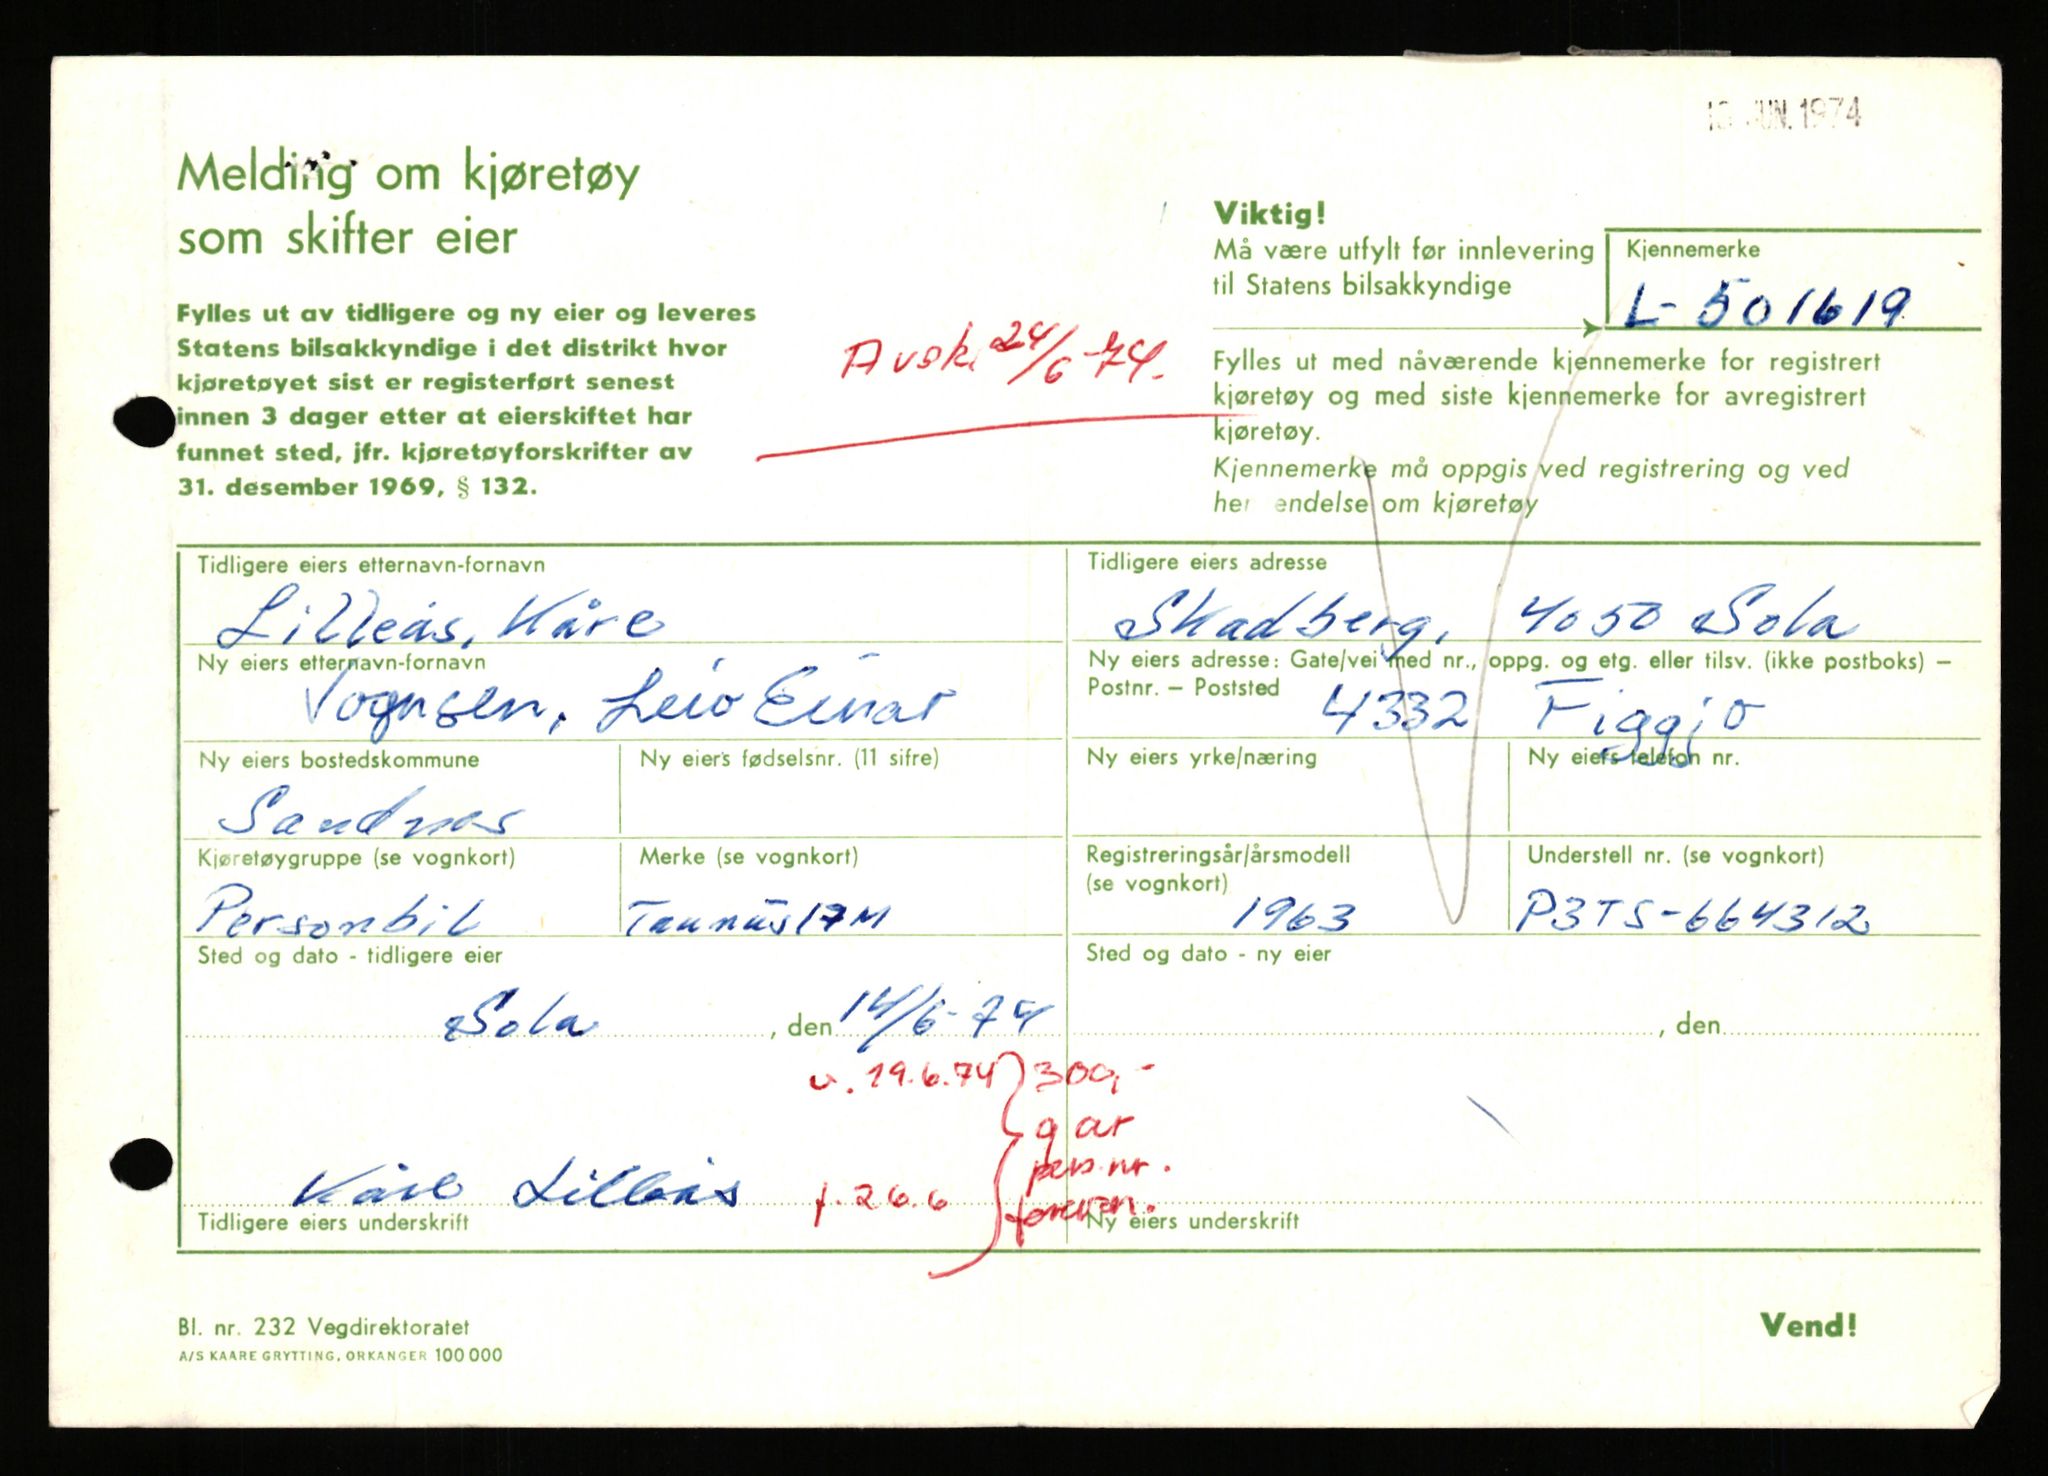 JUN. 1974
Melding om kjøretøy
som skifter eier
Fylles ut av tidligere og ny eier og leveres
Statens bilsakkyndige i det distrikt hvor
kjøretøyet sist er registerført senest
innen 3 dager etter at eierskiftet har
funnet sted, jfr. kjøretøyforskrifter av
31. desember 1969, § 132.
Avski 24/6-74.
Viktig!
Må være utfylt før innlevering
til Statens bilsakkyndige
Kjennemerke
L-501619
Fylles ut med nåværende kjennemerke for registrert
kjøretøy og med siste kjennemerke for avregistrert
kjøretøy.
Kjennemerke må oppgis ved registrering og ved
her endelse om kjøretøy
Tidligere eiers etternavn-fornavn
Lilleås, Kåre
Tidligere eiers adresse
Skadberg, 4050 Sola
Ny eiers etternavn-fornavn
Vognsen, Leiv Einar
Ny eiers adresse: Gate/vei med nr., oppg. og etg. eller tilsv. (ikke postboks) –
Postnr. – Poststed
4332 Figgjo
Ny eiers bostedskommune
Sandnes
Ny eiers fødselsnr. (11 sifre)
Ny eiers yrke/næring
Ny eiers telefon nr.
Kjøretøygruppe (se vognkort)
Personbil
Merke (se vognkort)
Taunus 17M
Registreringsår/årsmodell
(se vognkort)
1963
Understell nr. (se vognkort)
P3TS-664312
Sted og dato - tidligere eier
Sola, den 14/6-74
Sted og dato - ny eier
, den
v. 19.6.74 300,-
g ar
pers.nr.
f. 26.6
Kåre Lilleås
Tidligere eiers underskrift
Ny eiers underskrift
Bl. nr. 232 Vegdirektoratet
A/S KAARE GRYTTING, ORKANGER 100 000
Vend!